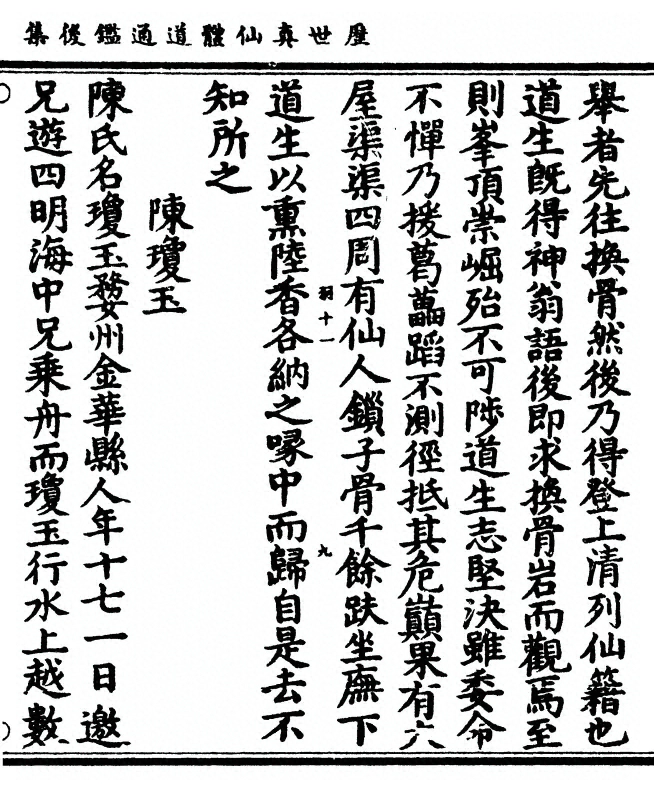 歷世真仙體道通鑑後集
舉者先往換骨然後乃得登上清列仙籍也
道生既得神翁語後即求換骨岩而觀焉至
則峯頂崇崛殆不可陟道生志堅決雖委命
不憚乃援葛藟蹈不測徑抵其危巔果有六
屋渠渠四周有仙人鎖子骨千餘趺坐廡下
羽十一
九
道生以熏陸香各納之喙中而歸自是去不
知所之
陳瓊玉
陳氏名瓊玉婺州金華縣人年十七一日邀
兄遊四明海中兄乘舟而瓊玉行水上越數